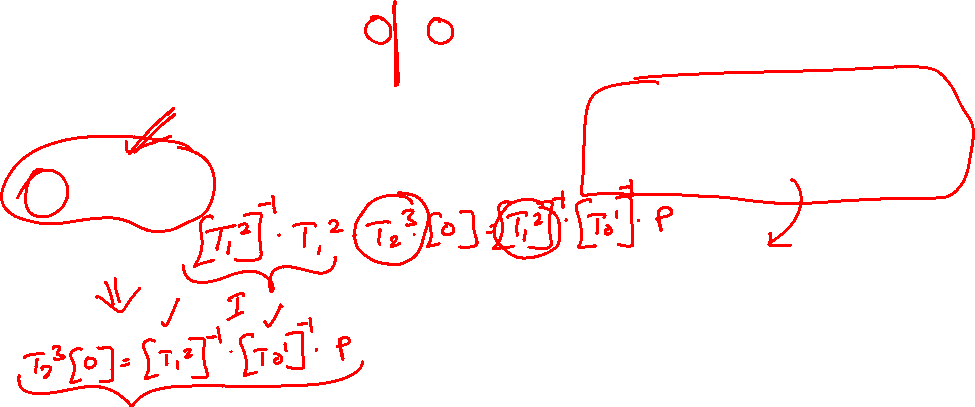 [T₁²]⁻¹ · T₁² T₂³ · [0] = [T₁²]⁻¹ · [T₀¹]⁻¹ · P
I
T₂³ [0] = [T₁²]⁻¹ · [T₀¹]⁻¹ · P